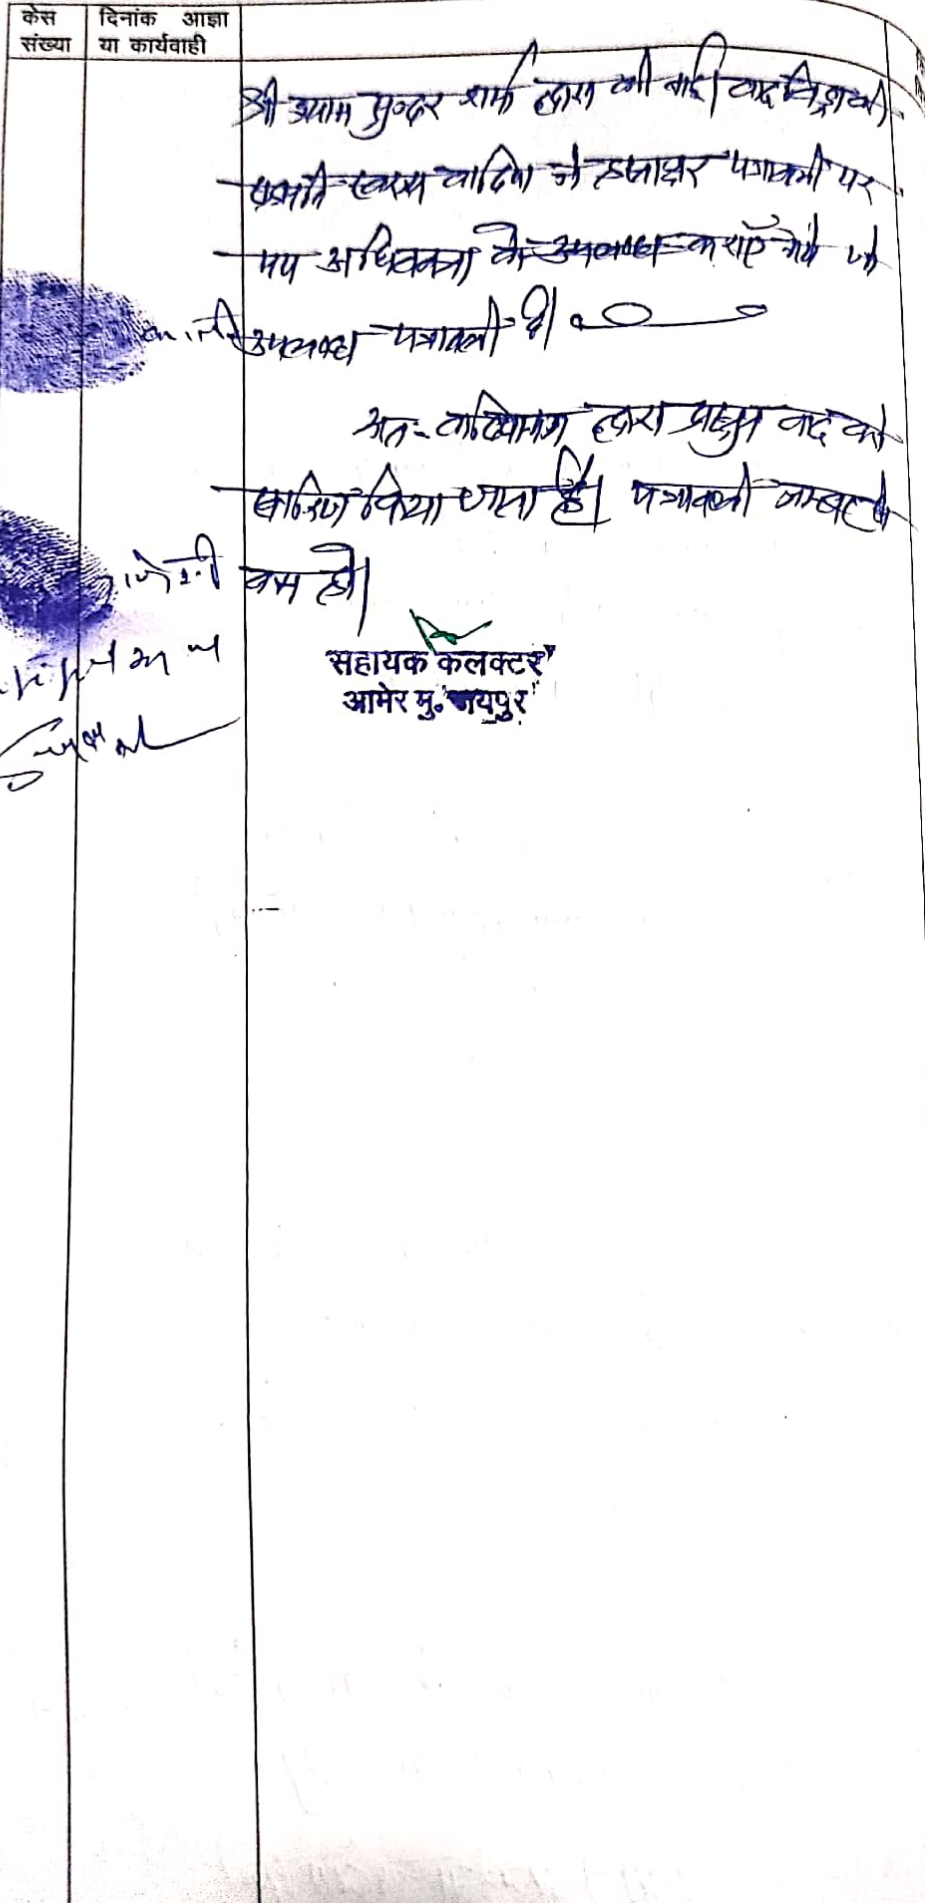 केस दिनांक आज्ञा
संख्या या कार्यवाही
श्री श्याम सुन्दर शर्मा द्वारा की गई वाद विड्रा की
सहमति स्वरूप वादिया के हस्ताक्षर पत्रावली पर
मय अधिवक्ता के उपलब्ध कराऐं गये जो
उपलब्ध पत्रावली है।
अतः वादियागण द्वारा प्रस्तुत वाद को
खारिज किया जाता है। पत्रावली नम्बर से
कम हो।
सहायक कलक्टर
आमेर मु. जयपुर